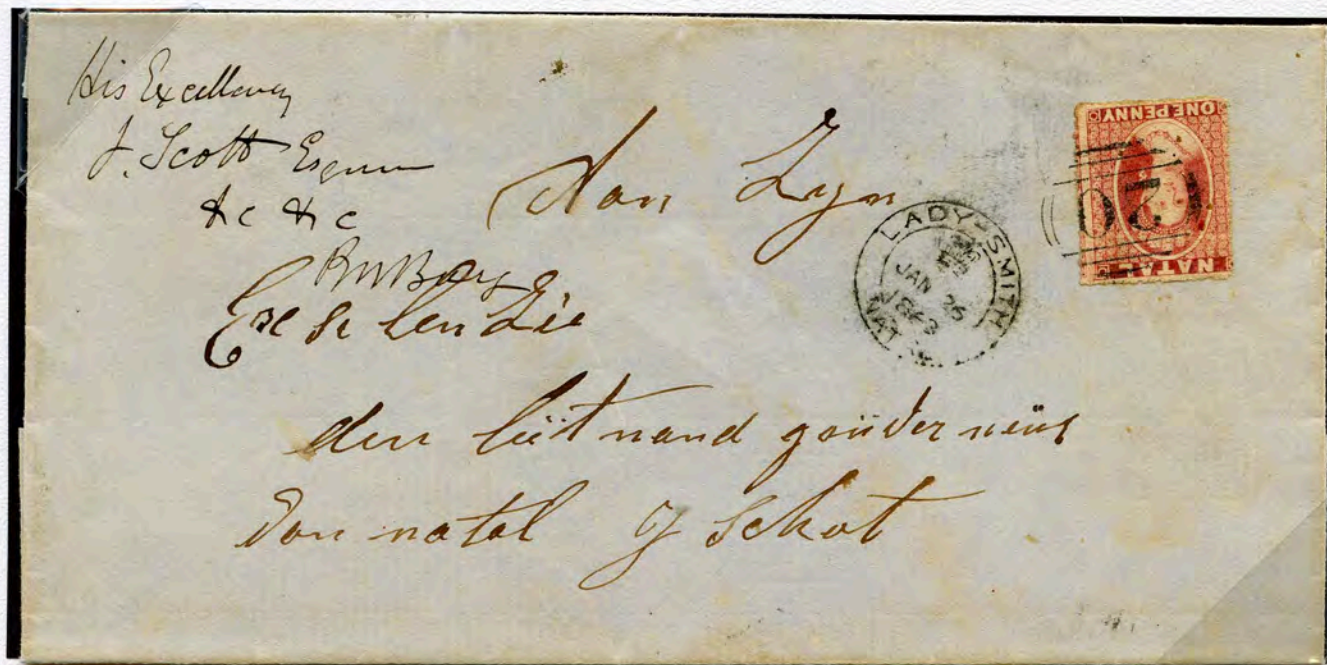 His Excellency
J. Scott Esquire
&c &c
Aan Zyn
Ex se len Zie
den lüt nand goüder neür
von natal J Schot
LADY-SMITH
JAN 25
1863
NATAL
ONE PENNY
NATAL
20